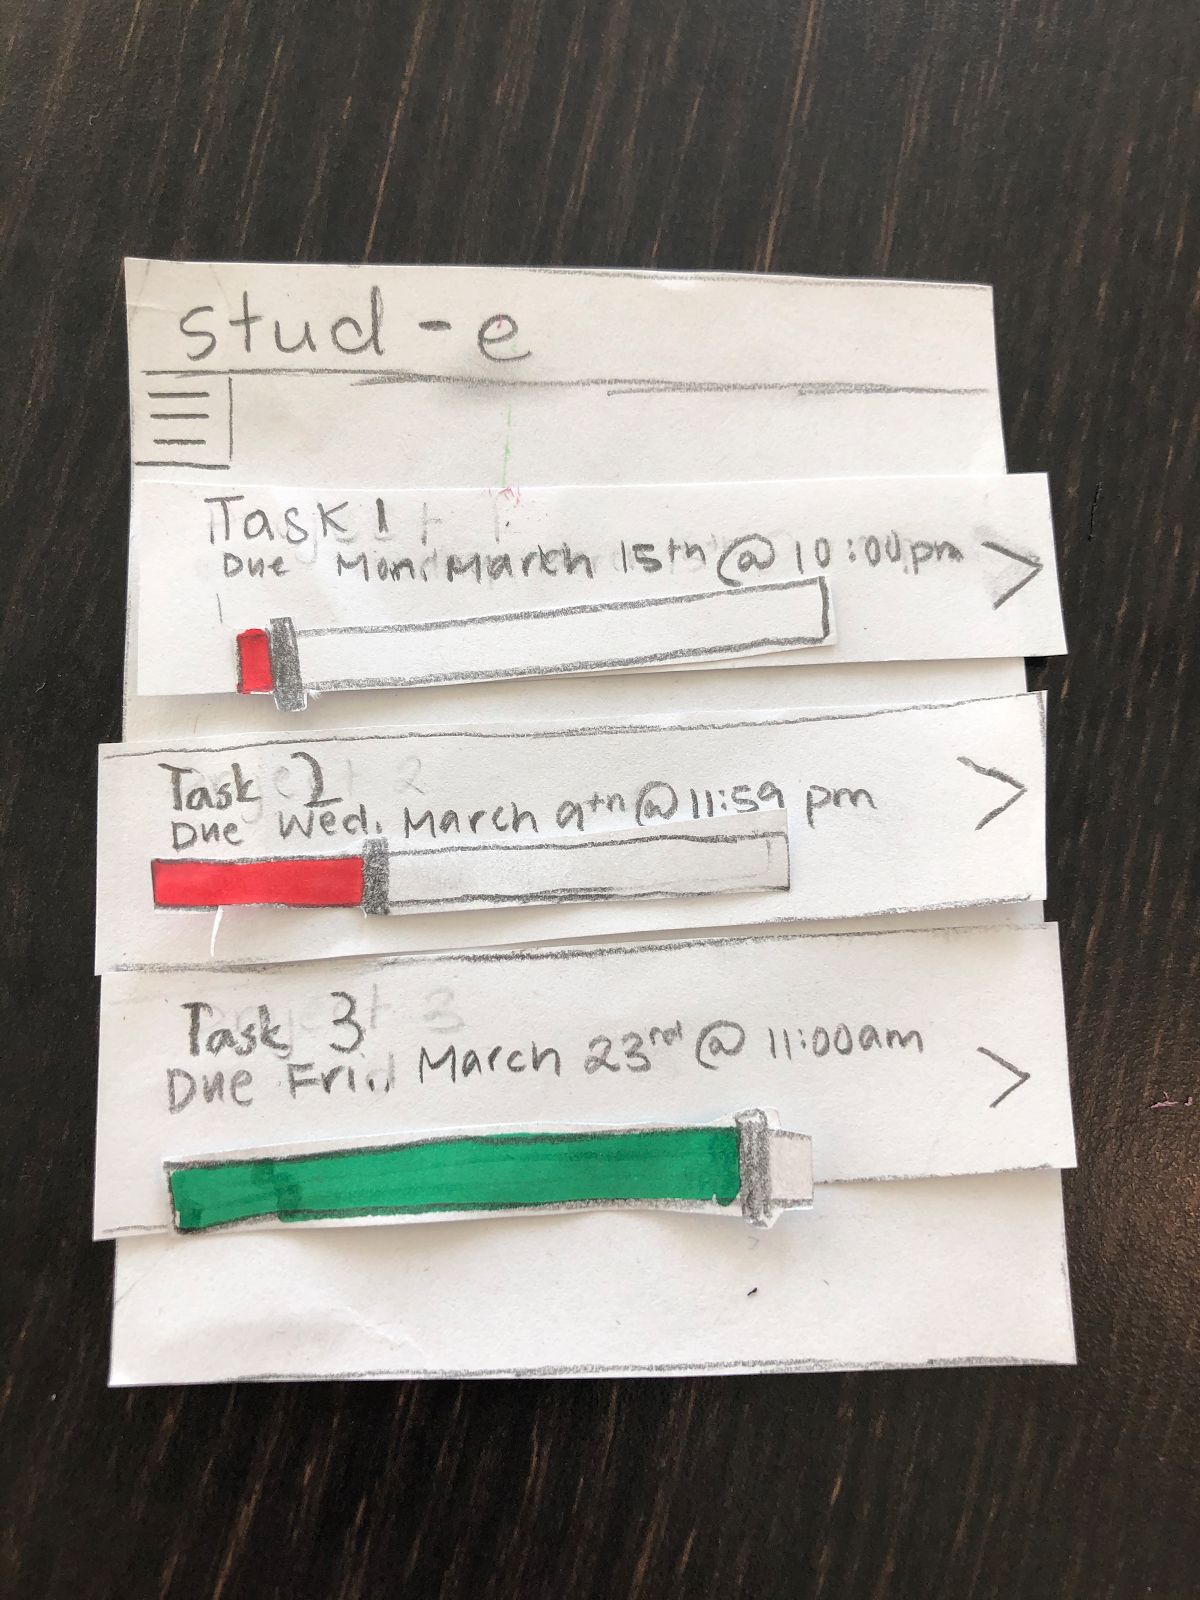 stud-e
Task 1
Due Mon. March 15th @ 10:00pm
Task 2
Due Wed. March 9th @ 11:59 pm
Task 3
Due Fri. March 23rd @ 11:00am